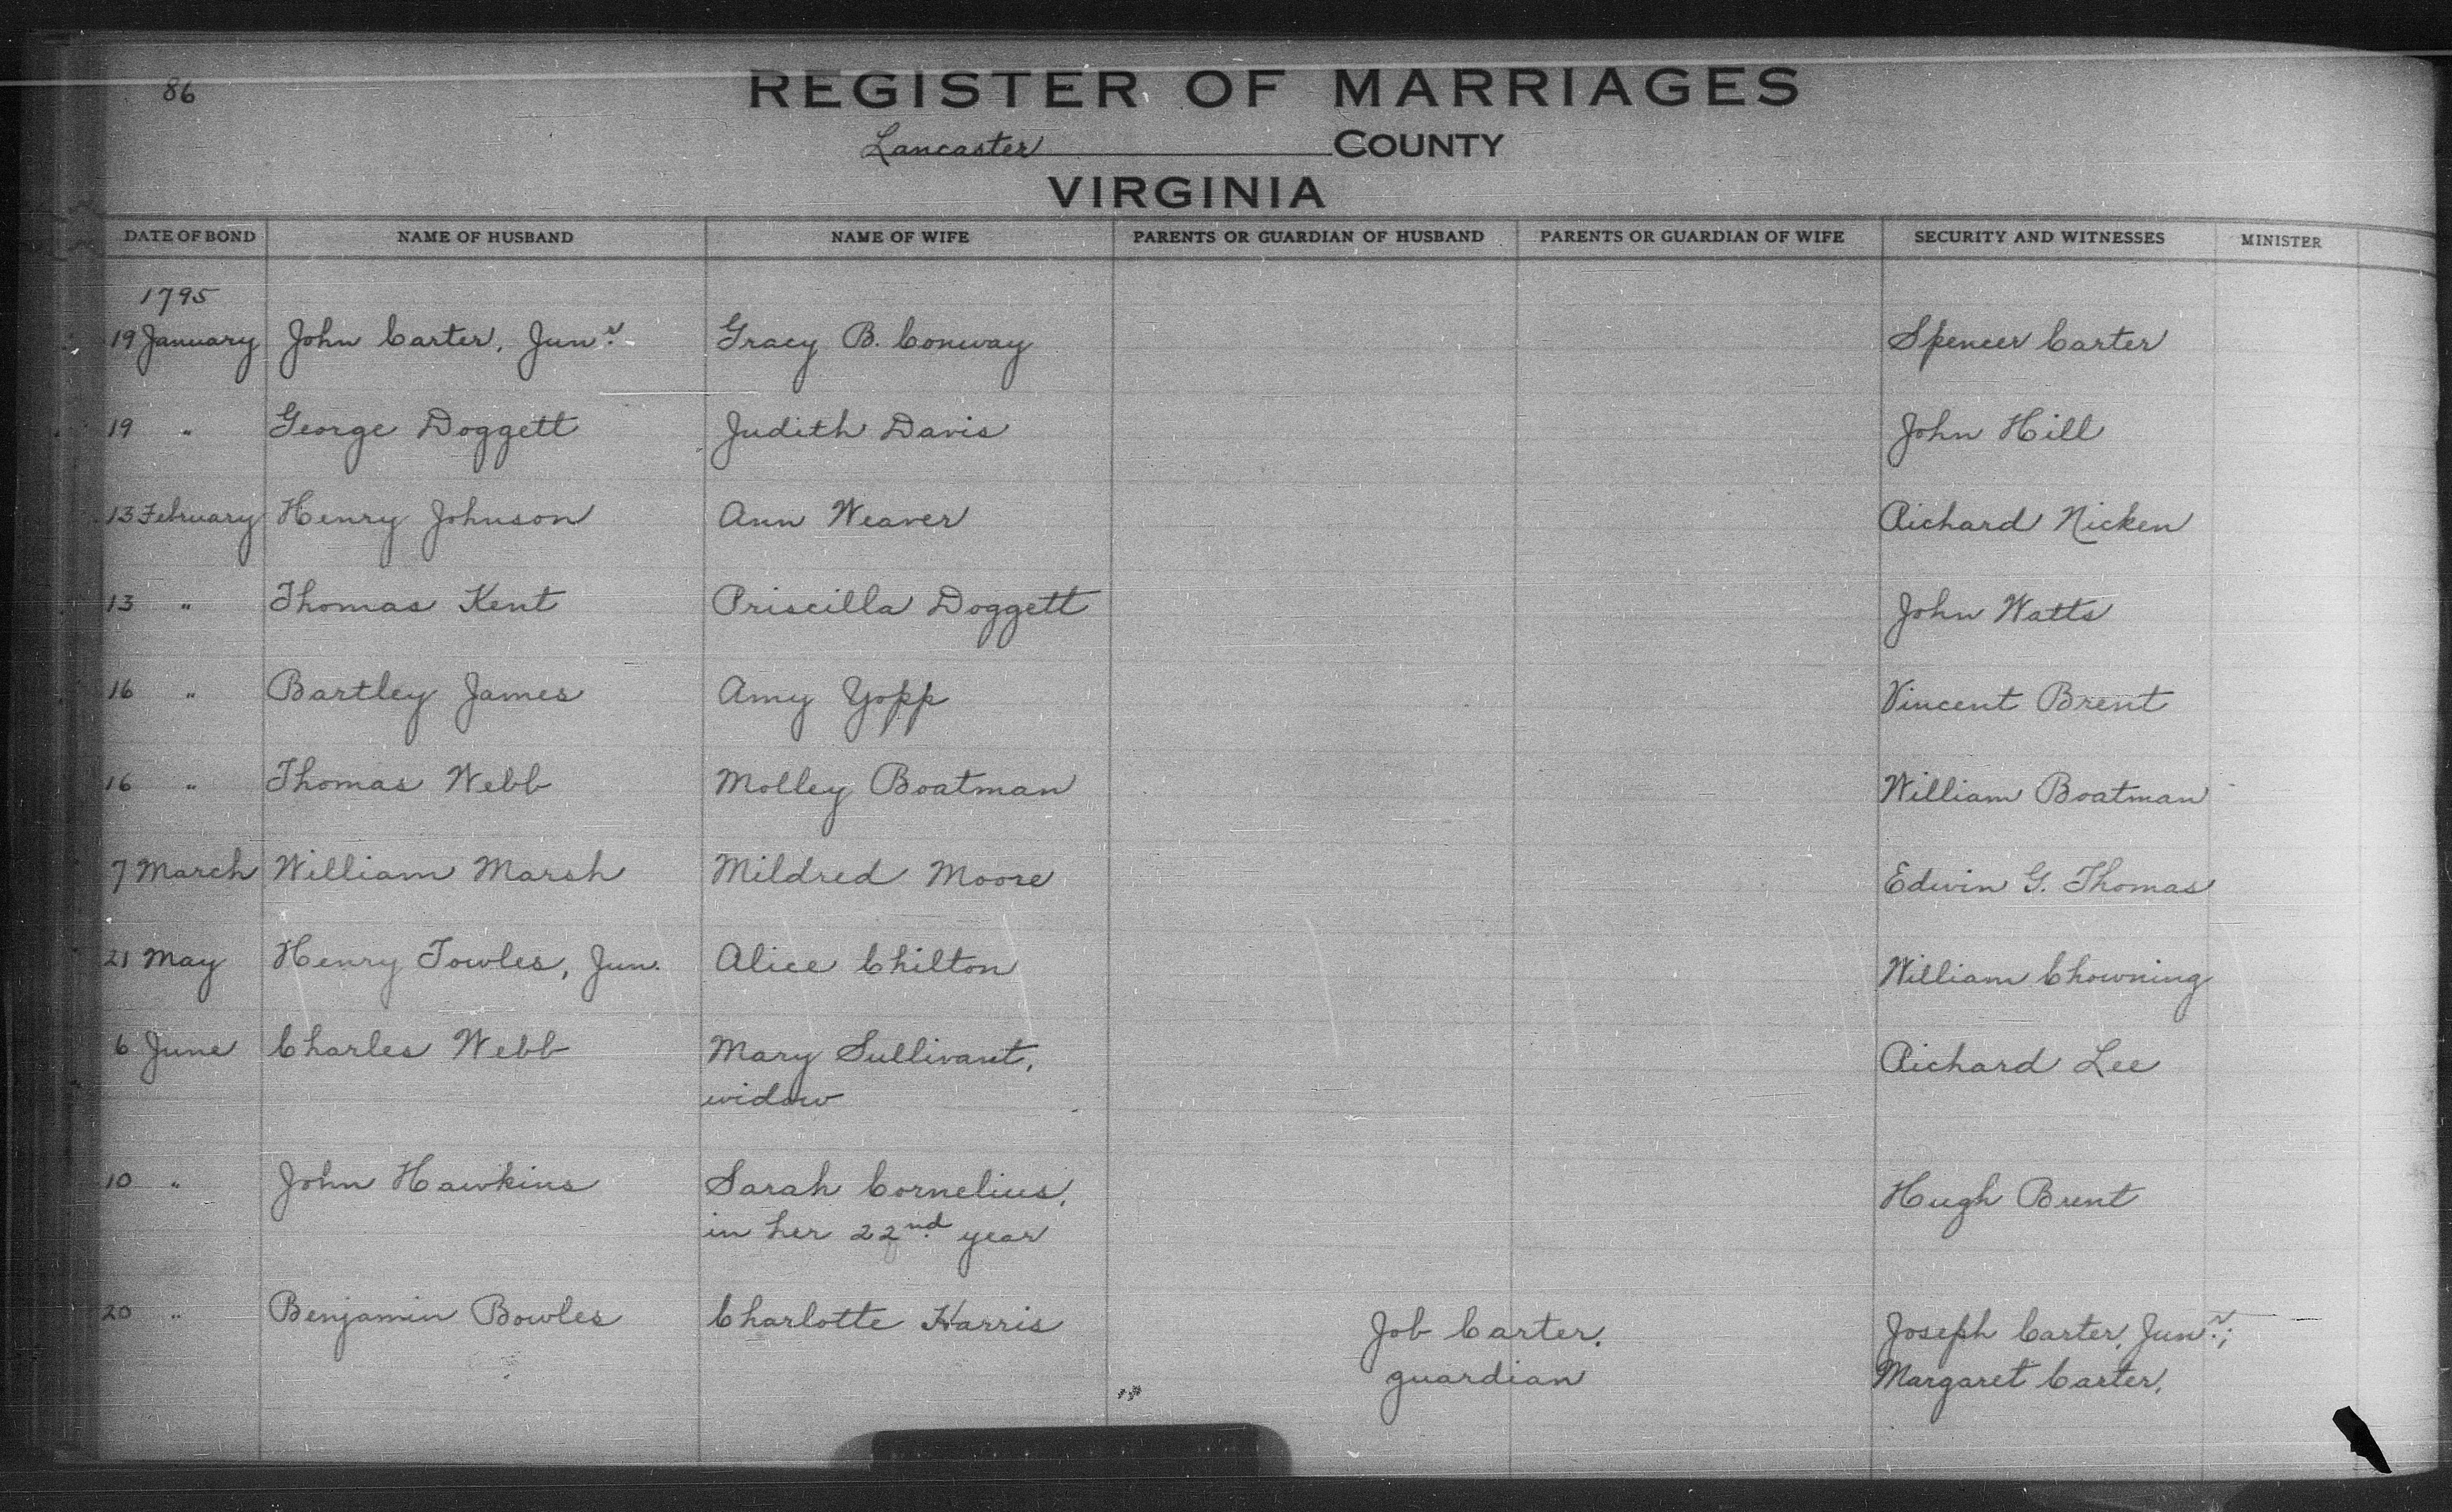 86
REGISTER OF MARRIAGES
Lancaster COUNTY
VIRGINIA
DATE OF BOND NAME OF HUSBAND NAME OF WIFE PARENTS OR GUARDIAN OF HUSBAND PARENTS OR GUARDIAN OF WIFE SECURITY AND WITNESSES MINISTER
1795
19 January John Carter, Junr. Gracy B. Conway Spencer Carter
19 " George Doggett Judith Davis John Hill
13 February Henry Johnson Ann Weaver Richard Nicken
13 " Thomas Kent Priscilla Doggett John Watts
16 " Bartley James Amy Yopp Vincent Brent
16 " Thomas Webb Molley Boatman William Boatman
7 March William Marsh Mildred Moore Edwin G. Thomas
21 May Henry Towles, Jun. Alice Chilton William Chowning
6 June Charles Webb Mary Sullivant, Richard Lee
widow
10 " John Hawkins Sarah Cornelius, Hugh Brent
in her 22nd year
20 " Benjamin Bowles Charlotte Harris Job Carter, Joseph Carter, Junr.;
guardian Margaret Carter.